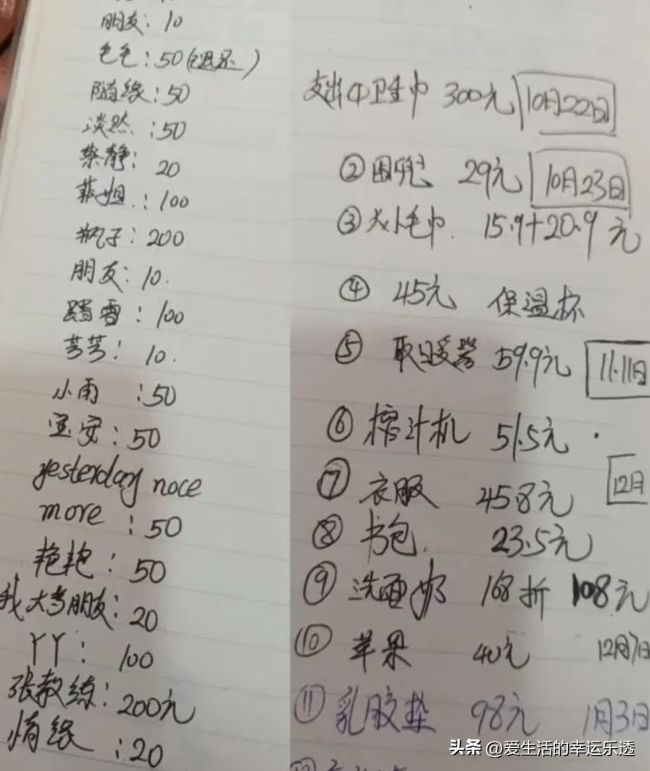 朋友：10
毛毛：50(已退还)
随缘：50
淡然：50
蔡静：20
菲姐：100
瓶子：200
朋友：10.
踏雪：100
芳芳：10.
小雨：50
宝安：50
yesterday noce
more：50
艳艳：50
我大梦朋友：20
丫丫：100
张教练：200元
情缘：20
支出①卫生巾 300元 10月22日
②围兜 29元 10月23日
③大小毛巾. 15.9+20.9元
④ 45元 保温杯
⑤ 取暖器 59.9元 11.11日
⑥ 榨汁机 51.5元.
⑦ 衣服 458元 12月
⑧ 书包. 23.5元
⑨ 洗面奶 168折 108元
⑩ 苹果 40元 12月7日
⑪ 乳胶垫 98元 1月3日
头条 @爱生活的幸运乐透